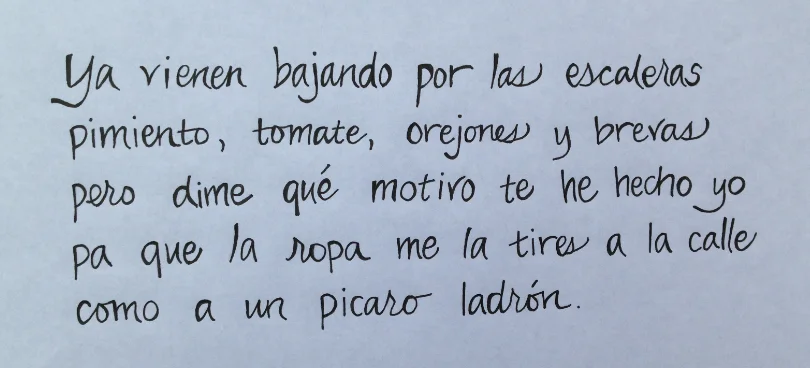 Ya vienen bajando por las escaleras
pimiento, tomate, orejones y brevas
pero dime qué motivo te he hecho yo
pa que la ropa me la tires a la calle
como a un picaro ladrón.